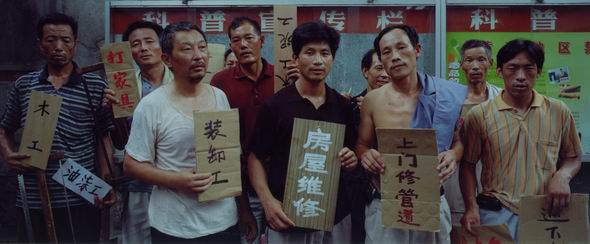 科普宣传栏
科普
区
木工
打家具
油漆工
装卸工
房屋维修
上门修管道
下